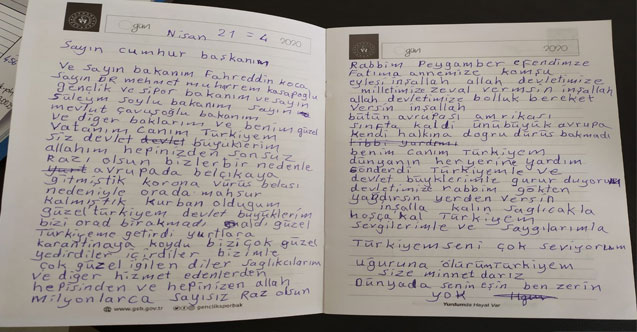 gün
Nisan 21 = 4
2020
Sayın cumhur başkanım
Ve sayın bakanım Fahreddin koca
Sayın DR mehmet muharrem kasapoğlu
gençlik ve sipor bakanım ve sayın
Süleym soylu bakanım sayın
mevlut çavuşoğlu bakanım
ve diğer baklarım ve benim güzel
Vatanım canım Türkiyem
siz devlet devlet büyüklerim
allahım hepinizden sonsuz
Razı olsun bizler bir nedenle
yurt avrupada belçikaya
gitmiştik korona vürüs belası
nedeniyle orada mahsur
kalmıştık kurban olduğum
güzel türkiyem devlet büyüklerim
bizi orad bırakmadı aldı güzel
Türkiyeme getirdi yurtlara
karantinaya koydu bizi çok güzel
yedirdiler içirdiler bizimle
çok güzel igilen diler sağlıkcılarım
ve diğer hizmet edenlerden
hepisinden ve hepinizen allah
milyonlarca sayısız Raz olsun
www.gsb.gov.tr
gencliksporbak
gün
2020
Rabbim Peygamber efendimze
fatıma annemize komşu
eylesi inşallah allah devletimize
milletimize zeval vermsin inşallah
allah devletimize bolluk bereket
versin inşallah
bütün avrupası amrikası
sınıfta kaldı ünübüyük avrupa
kendi halkına doğru dürüs bakmadı
Tıbbi yardımı
benim canım Türkiyem
dünyanın her yerine yardım
gönderdi Türkiyemle ve
devlet büyklerimle gurur duyoruz
devletimize rabbim gökten
yağdırsın yerden versin
inşalla kalın sağlıcakla
hoşça kal Türkiyem
sevgilerimle ve saygılarımla
Türkiyem seni çok seviyorum
uğuruna ölürüm Türkiyem
size minnetdarız
Dünyada senin eşin benzerin
yok
Yurdumuz Hayat Var